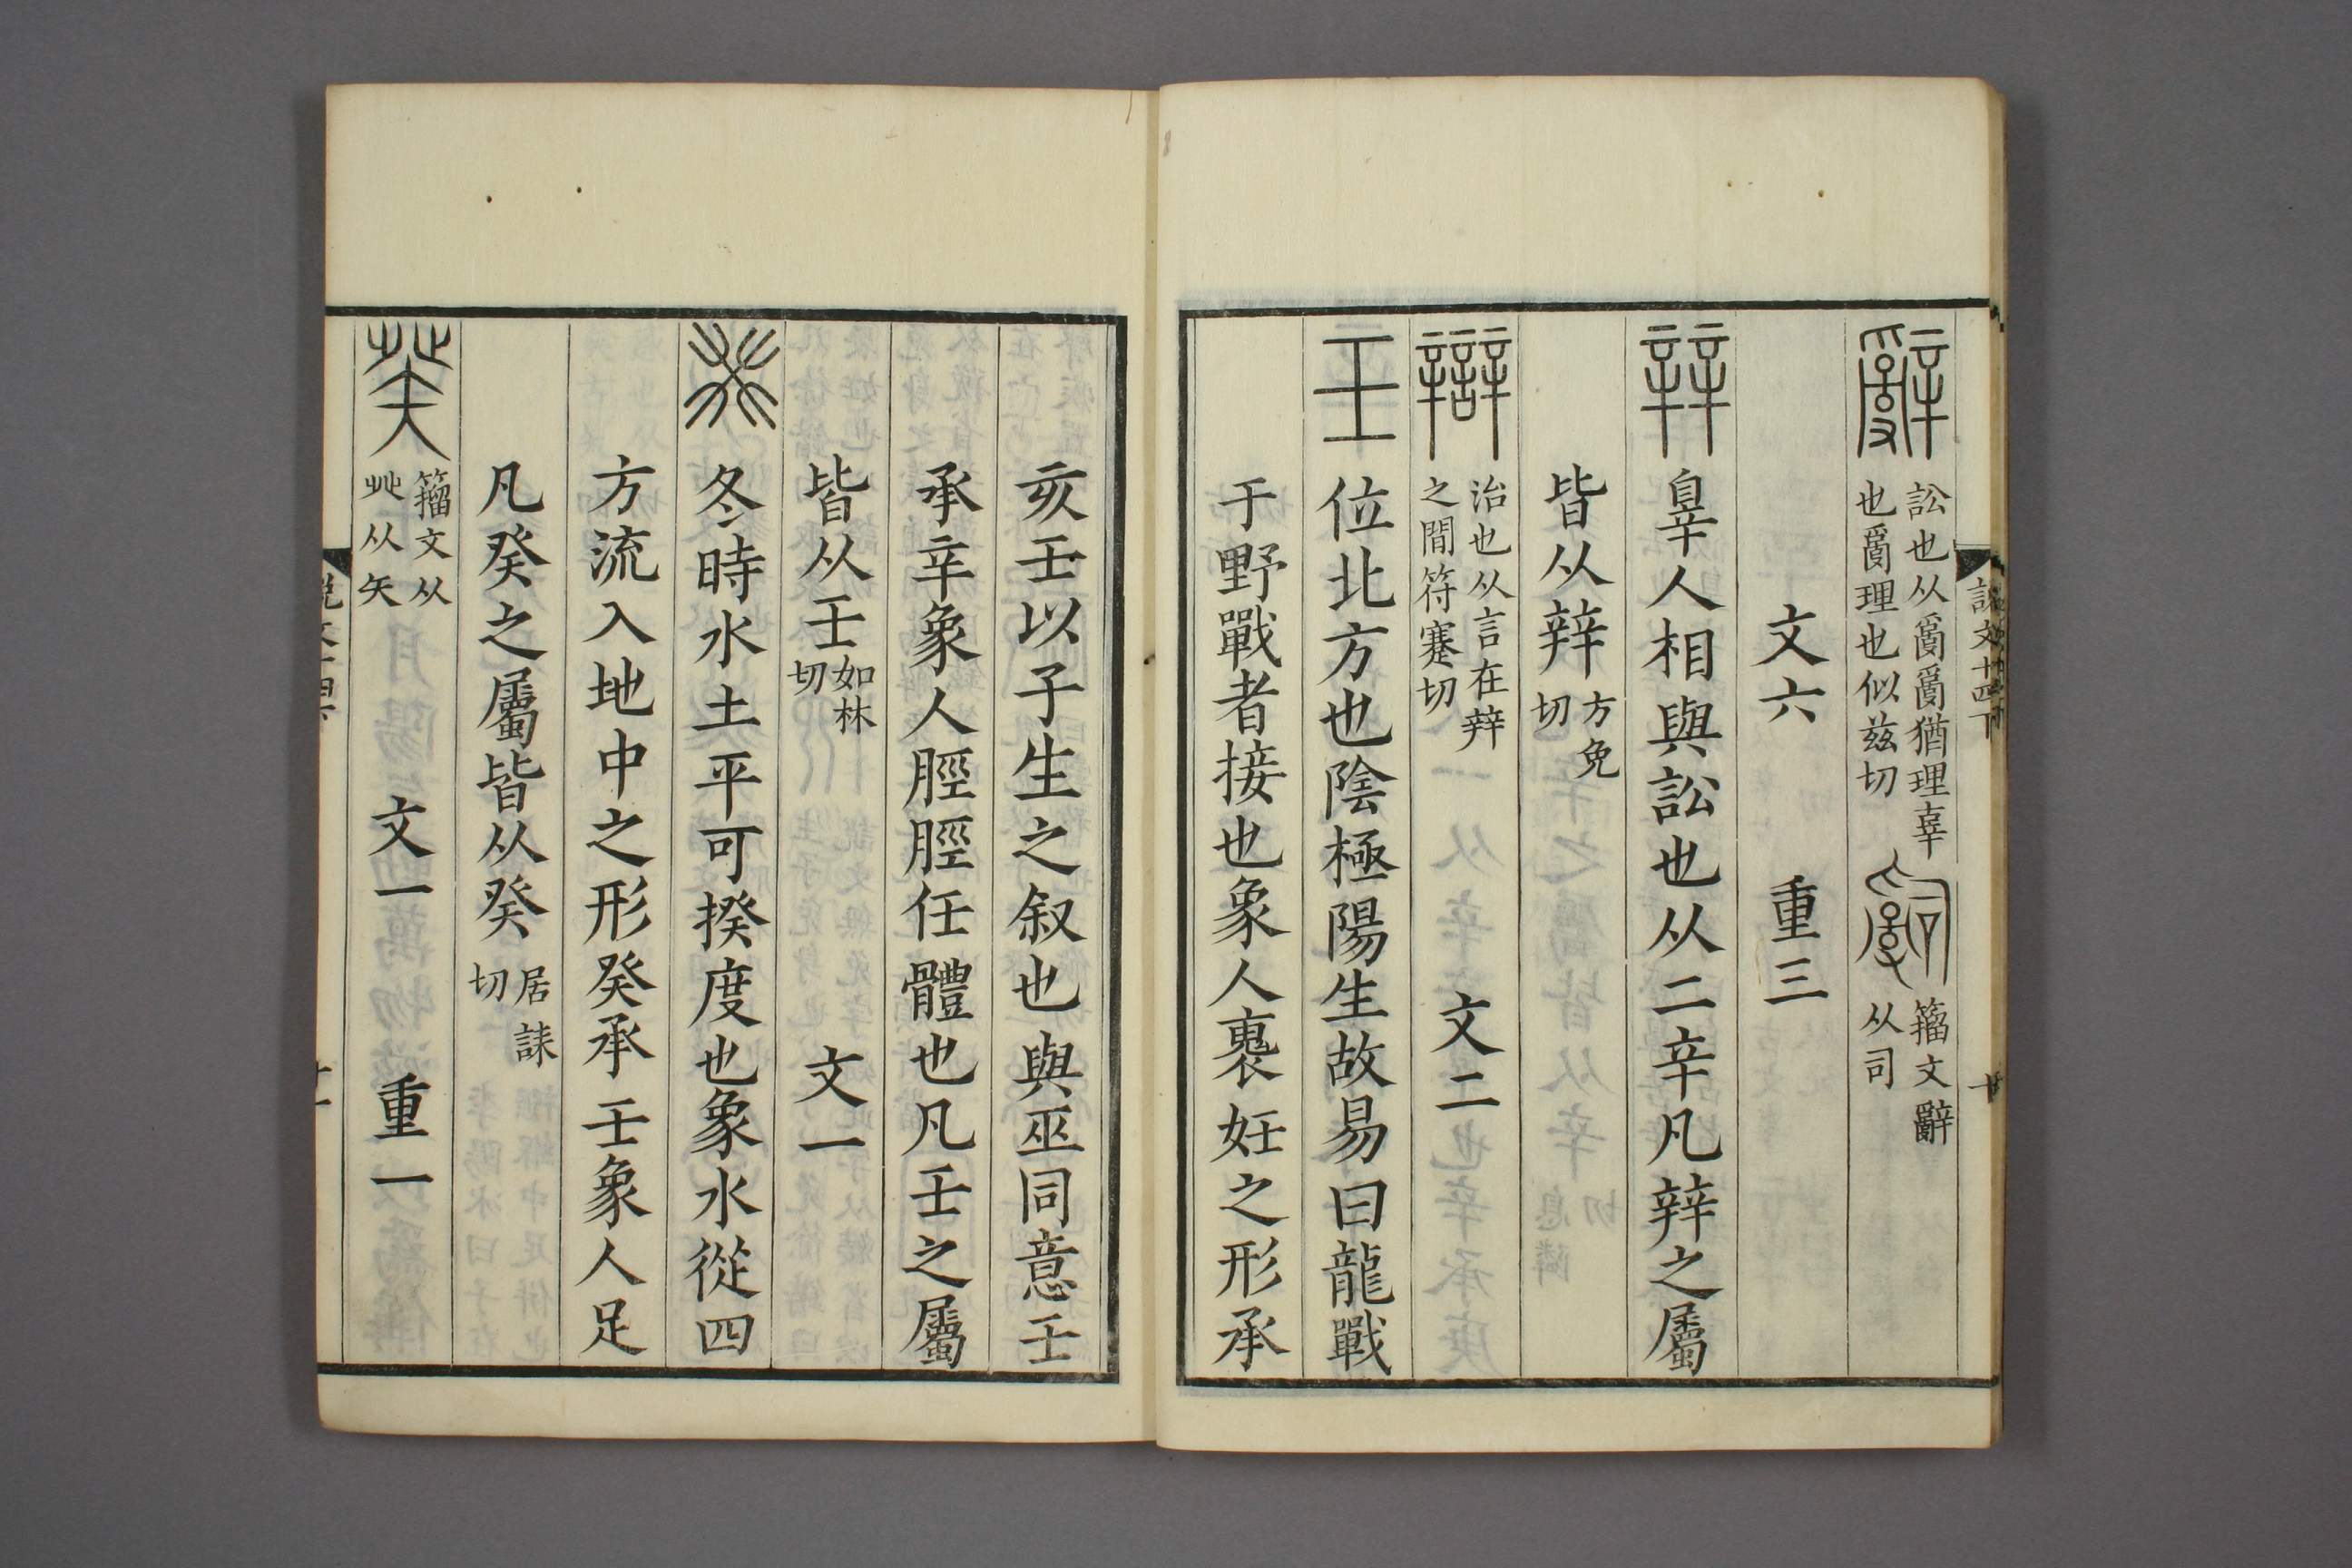 説文十四下
辭 訟也从𤔔𤔔猶理辜也𤔔理也似兹切 𤔲 籀文辭从司
文六 重三
辡 辠人相與訟也从二辛凡辡之屬
皆从辡方免切
辯 治也从言在辡之間符蹇切 文二
壬 位北方也陰極陽生故易曰龍戰
于野戰者接也象人褢妊之形承
亥壬以子生之叙也與巫同意壬
承辛象人脛脛任體也凡壬之屬
皆从壬如林切 文一
癸 冬時水土平可揆度也象水從四
方流入地中之形癸承壬象人足
凡癸之屬皆从癸居誄切
𤼩 籀文从癶从矢 文一 重一